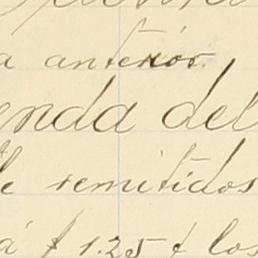 a anterior.
enda del
le remitidos
á $ 1.25 $ los